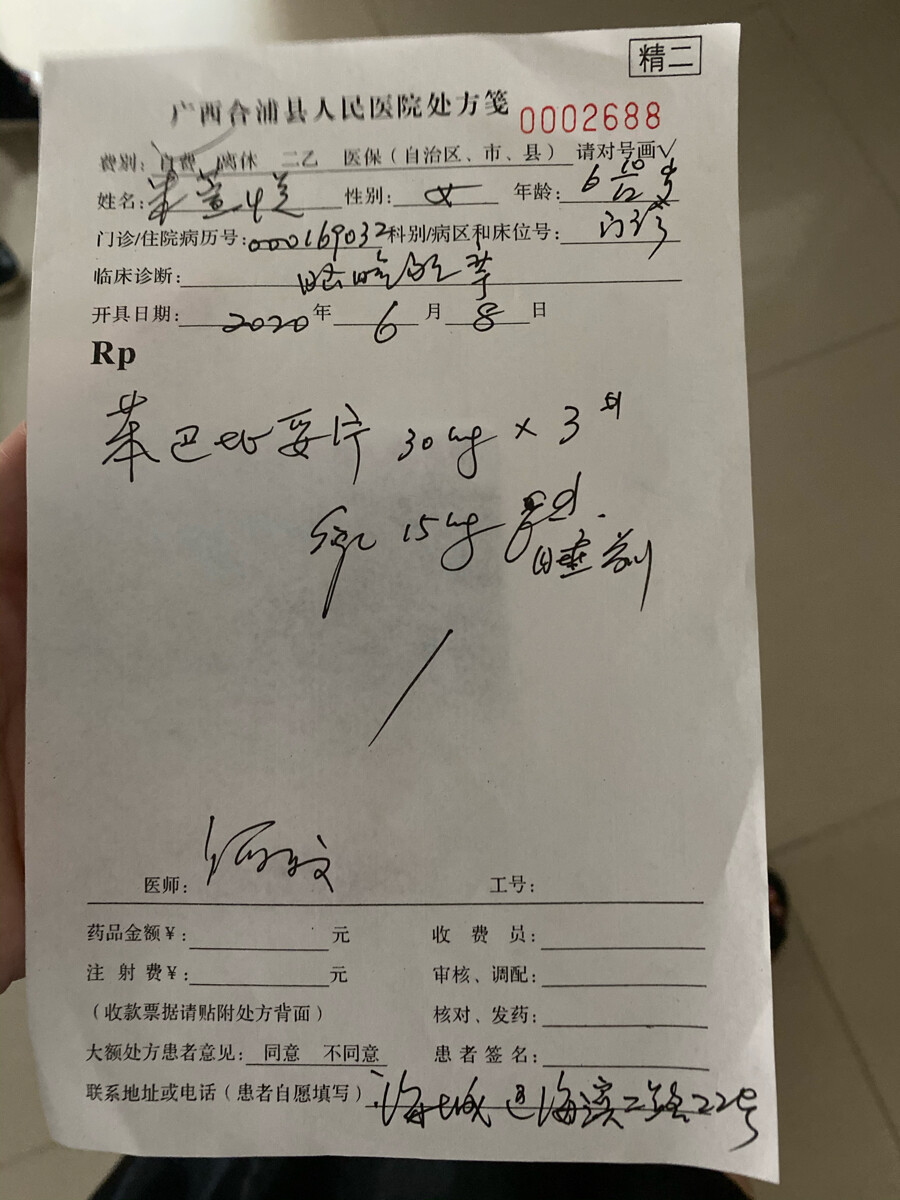 精二
广西合浦县人民医院处方笺
0002688
费别: 自费 离休 二乙 医保(自治区、市、县) 请对号画√
姓名: 性别: 女 年龄: 6 10/12 岁
门诊/住院病历号: 000169032 科别/病区和床位号: 门诊
临床诊断:
开具日期: 2020 年 6 月 8 日
Rp
苯巴比妥片 30mg × 3片
15mg 睡前
医师:
工号:
药品金额¥: 元 收费员:
注射费¥: 元 审核、调配:
(收款票据请贴附处方背面) 核对、发药:
大额处方患者意见: 同意 不同意 患者签名:
联系地址或电话(患者自愿填写) 海城区海滨二路22号